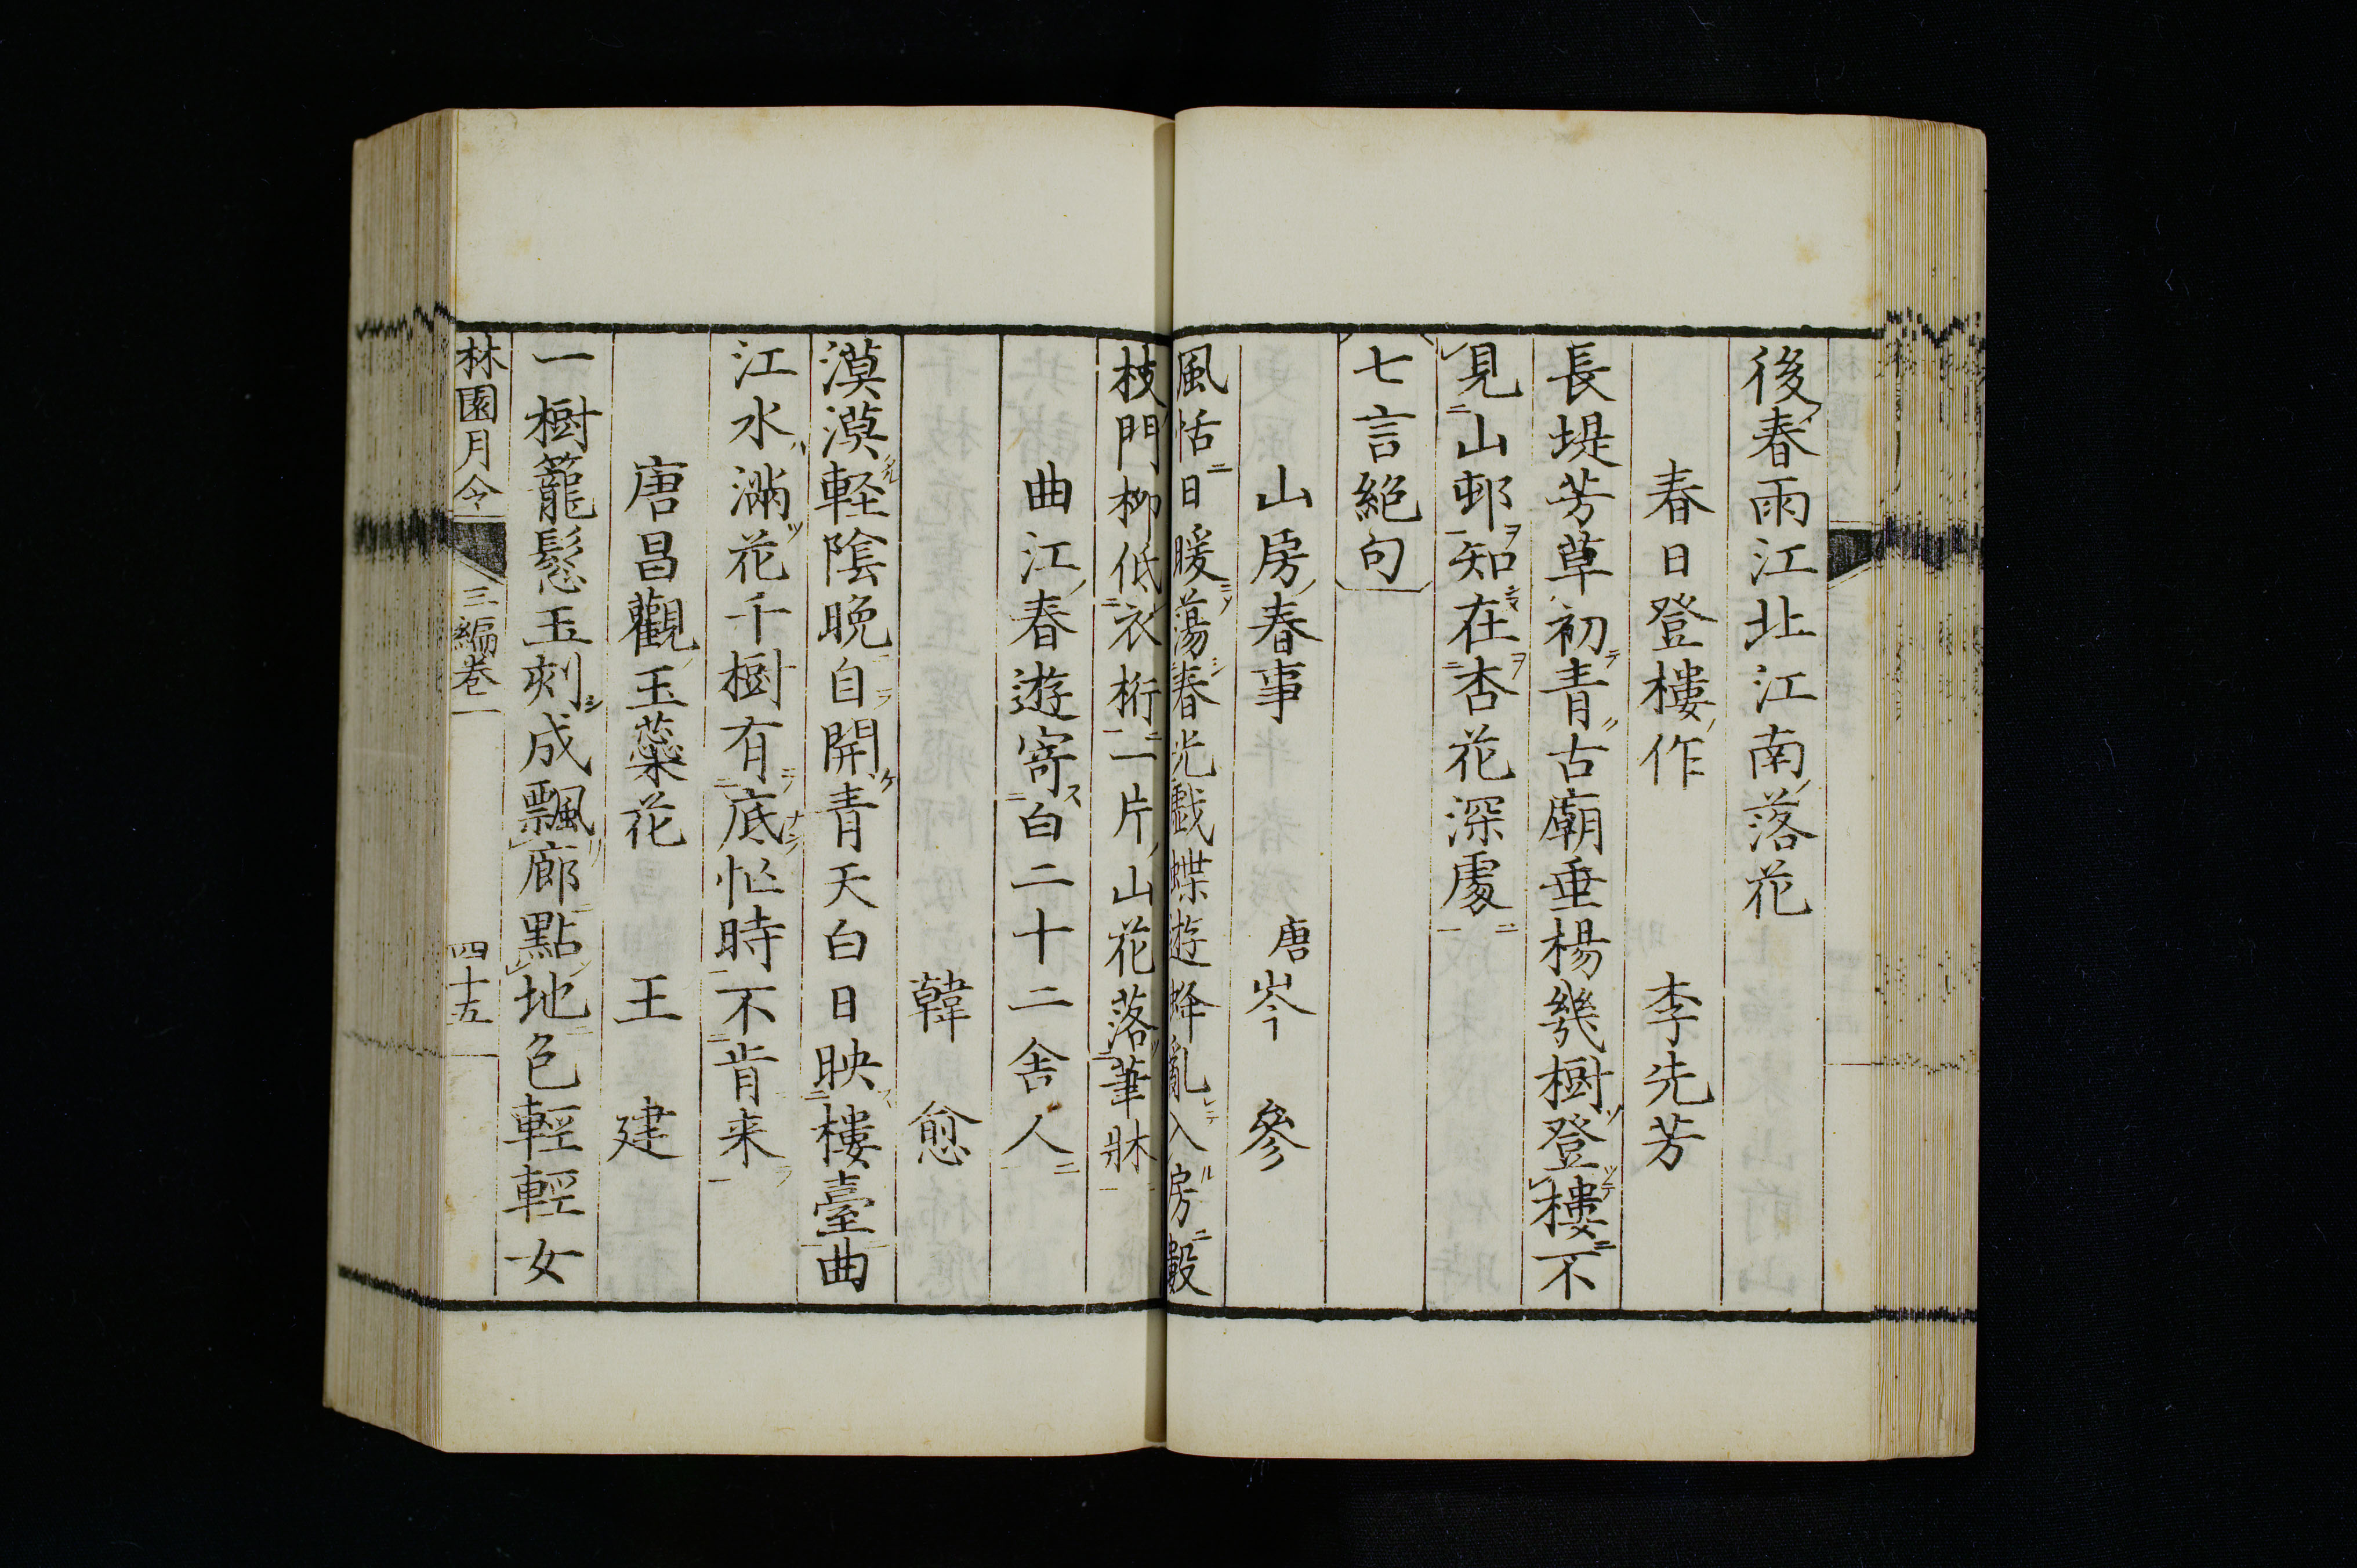 後春雨江北江南落花
春日登樓作 李先芳
長堤芳草初青古廟垂楊幾樹登樓不
見山邨知在杏花深處
七言絕句
山房春事 唐岑參
風恬日暖蕩春光戲蝶遊蜂亂入房數
枝門柳低衣桁一片山花落筆牀
曲江春遊寄白二十二舍人
韓愈
漠漠軽陰晩自開青天白日映樓臺曲
江水滿花千樹有底忙時不肯来
唐昌觀玉蘂花 王建
一樹籠鬆玉刻成飄廊點地色輕輕女
林園月令 三編卷一 四十五